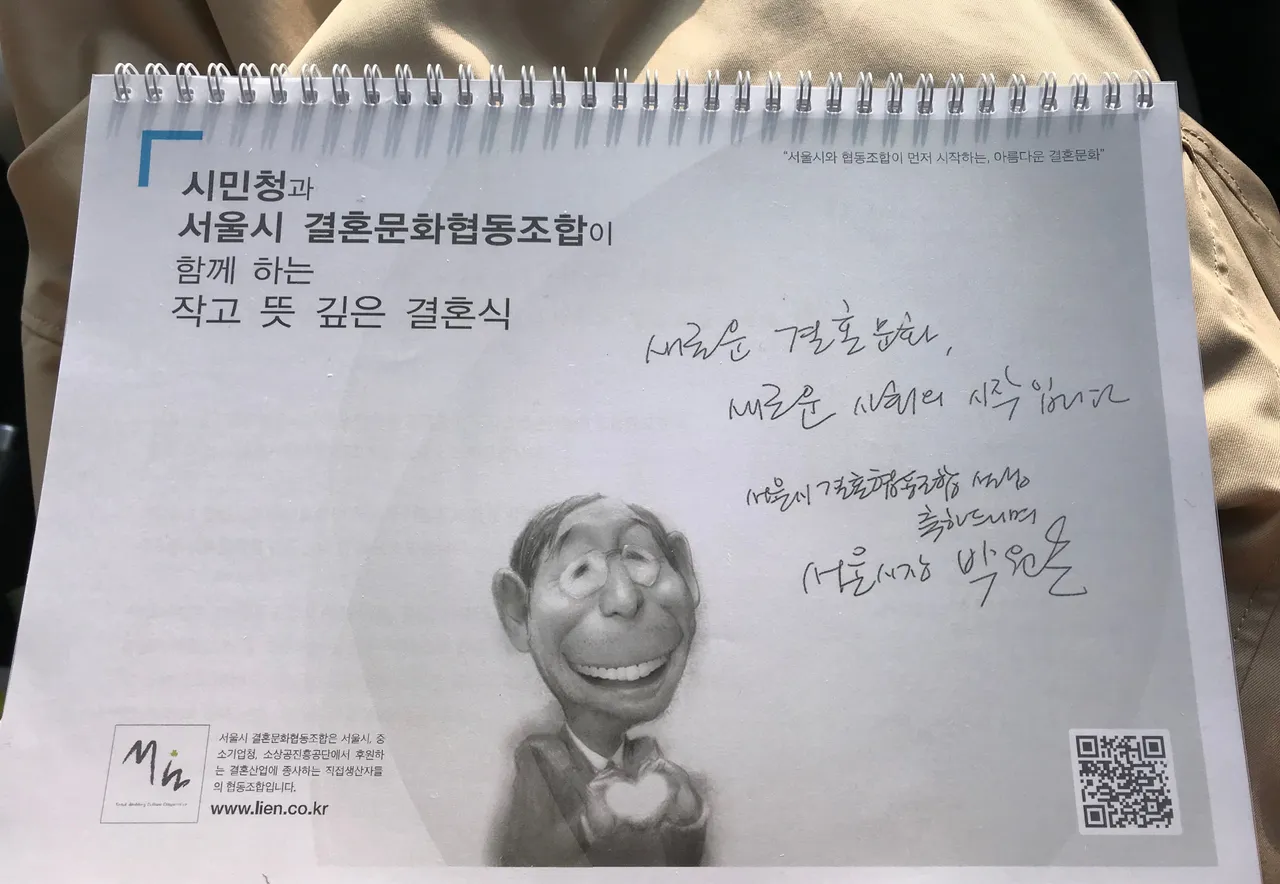 "서울시와 협동조합이 먼저 시작하는, 아름다운 결혼문화"
시민청과
서울시 결혼문화협동조합이
함께 하는
작고 뜻 깊은 결혼식
새로운 결혼문화,
새로운 사회의 시작입니다
서울시 결혼협동조합 선생
축하드리며
서울시장 박원순
서울시 결혼문화협동조합은 서울시, 중
소기업청, 소상공진흥공단에서 후원하
는 결혼산업에 종사하는 직접생산자들
의 협동조합입니다.
www.lien.co.kr